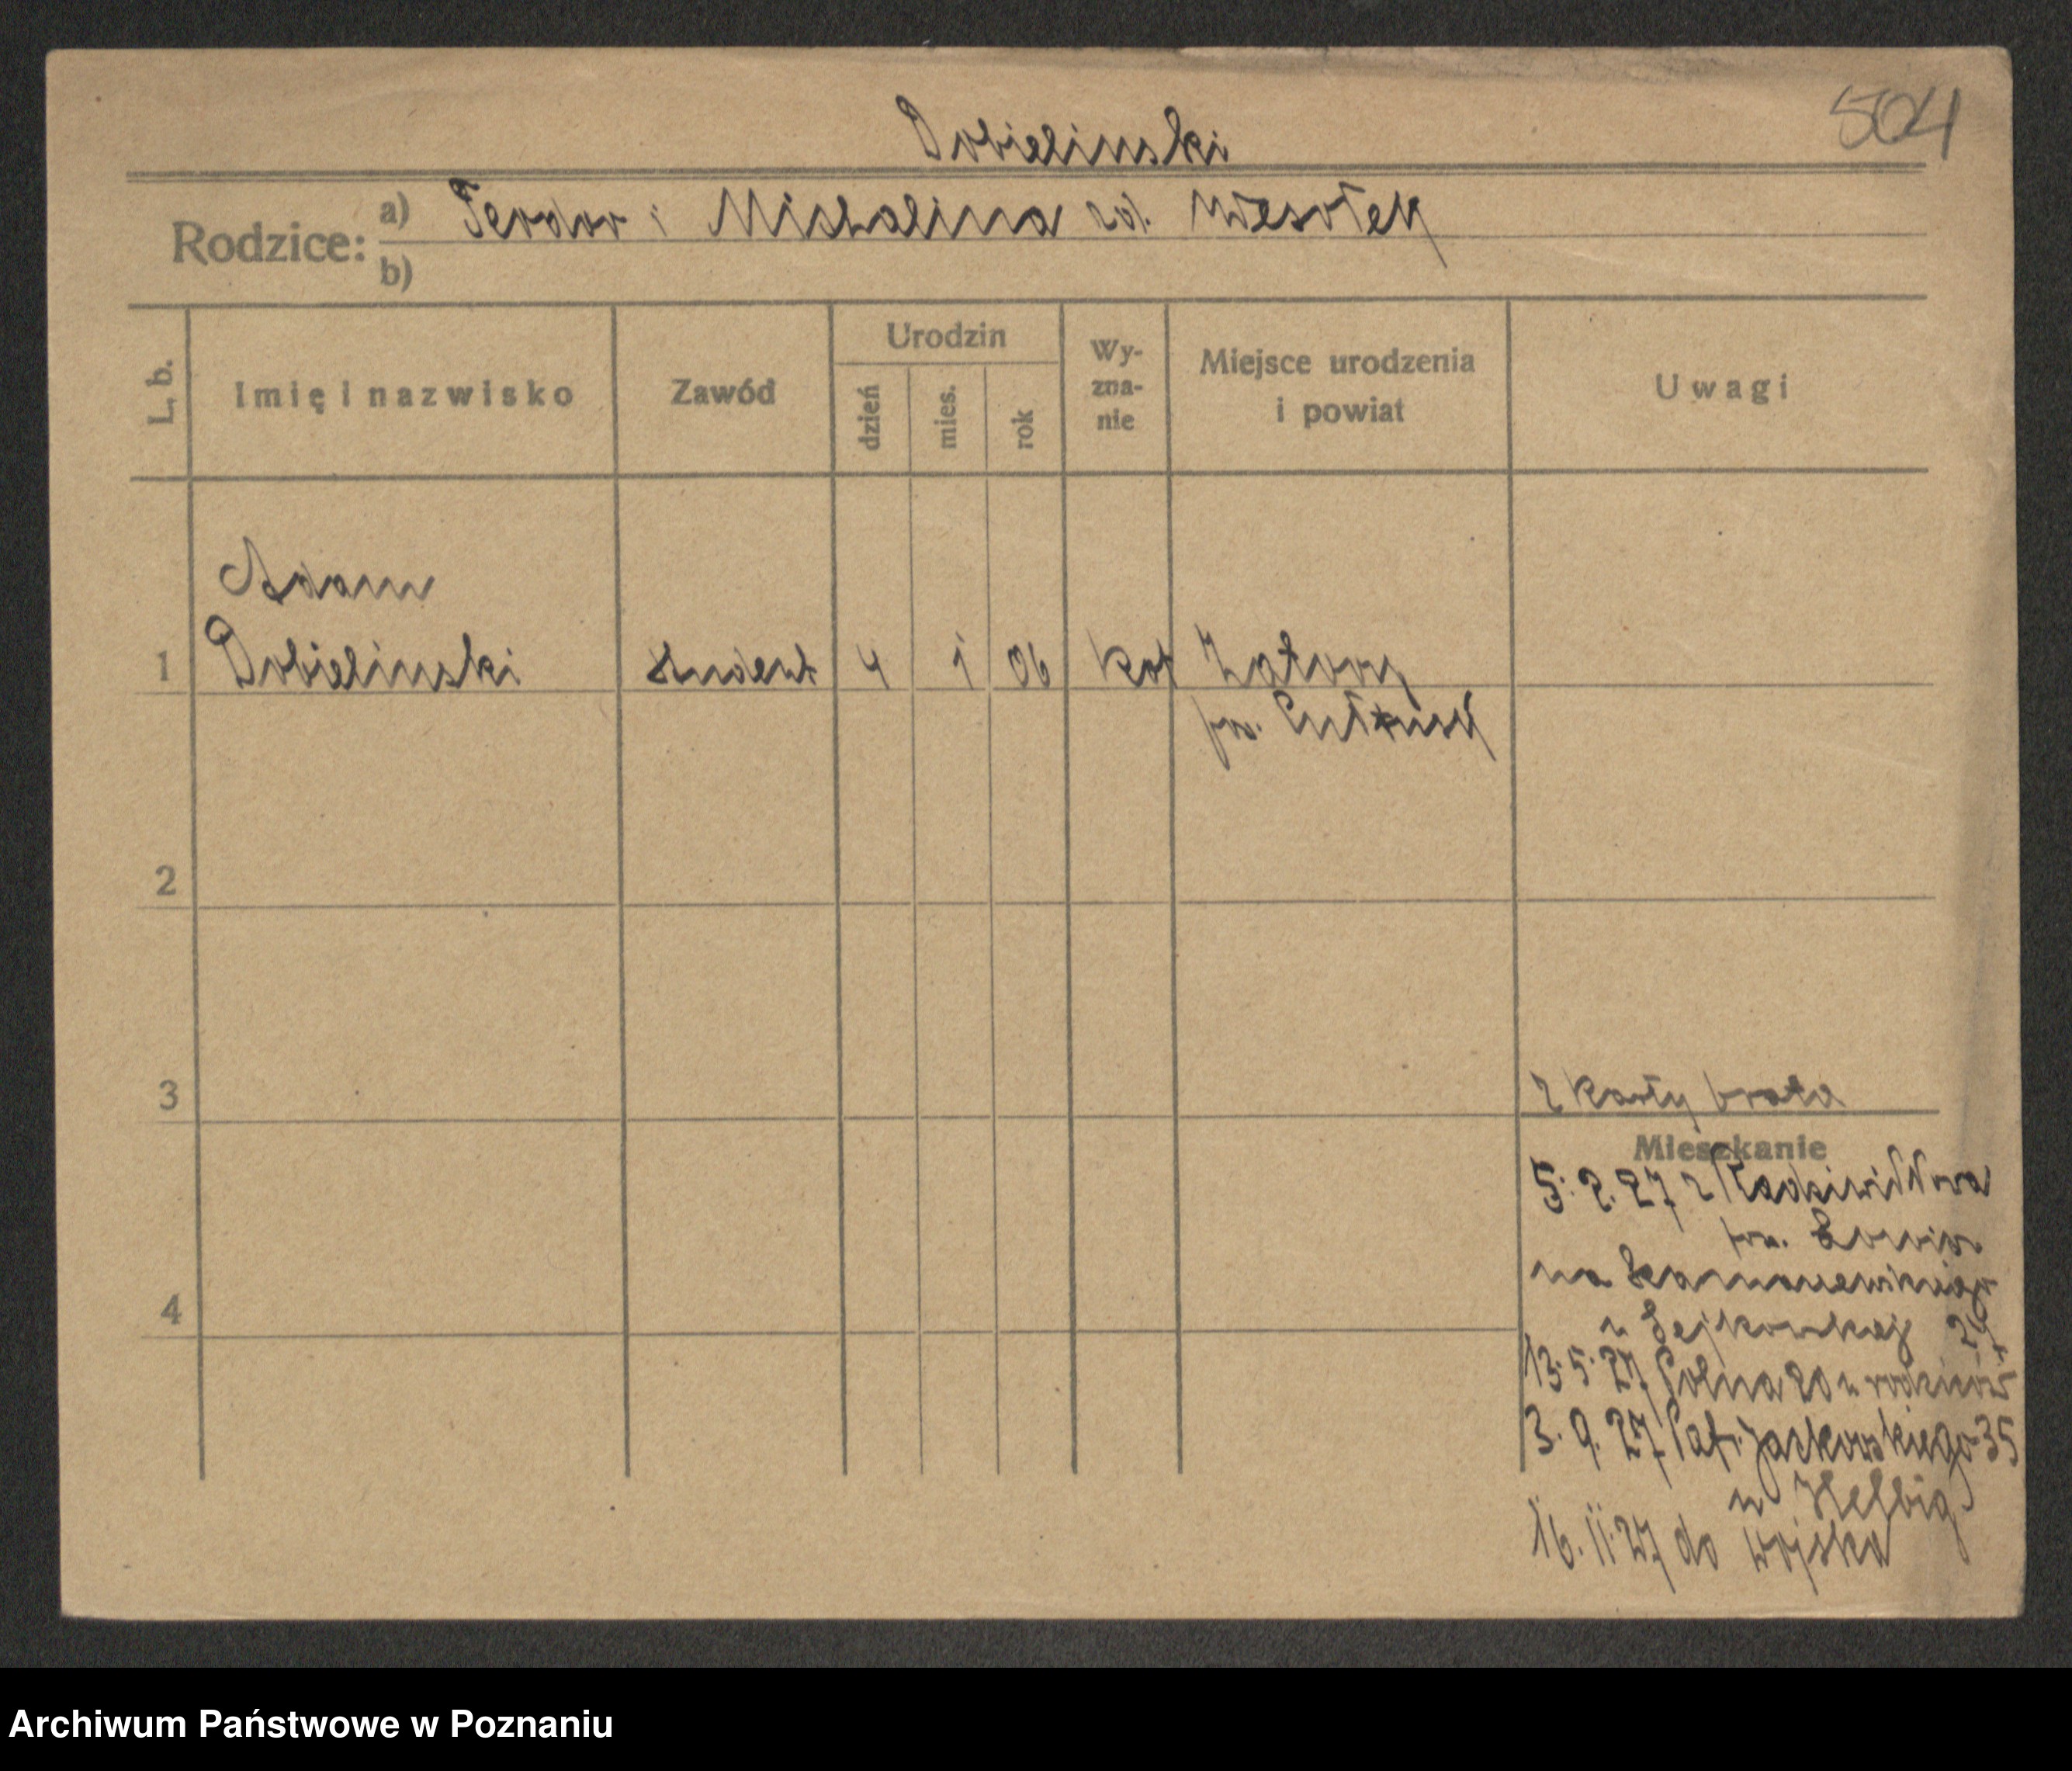 504
Dobielinski
Rodzice: a) Teodor i Michalina zd. Wesołek
b)
L. b.
Imię i nazwisko
Zawód
Urodzin
dzień
mies.
rok
Wy-
zna-
nie
Miejsce urodzenia
i powiat
Uwagi
Adam
1 Dobielinski student 4 1 06 kat Zatory
pow. Pułtusk
2
3
z karty brata
Mieszkanie
5. 2. 27 z Radziwiłłowa
pow.
na
u 24
4
13. 5. 27 Polna 20 u rodziców
3. 9. 27 Pat. Jackowskiego 35
u Helbig
16. 11. 27 do wojska
Archiwum Państwowe w Poznaniu